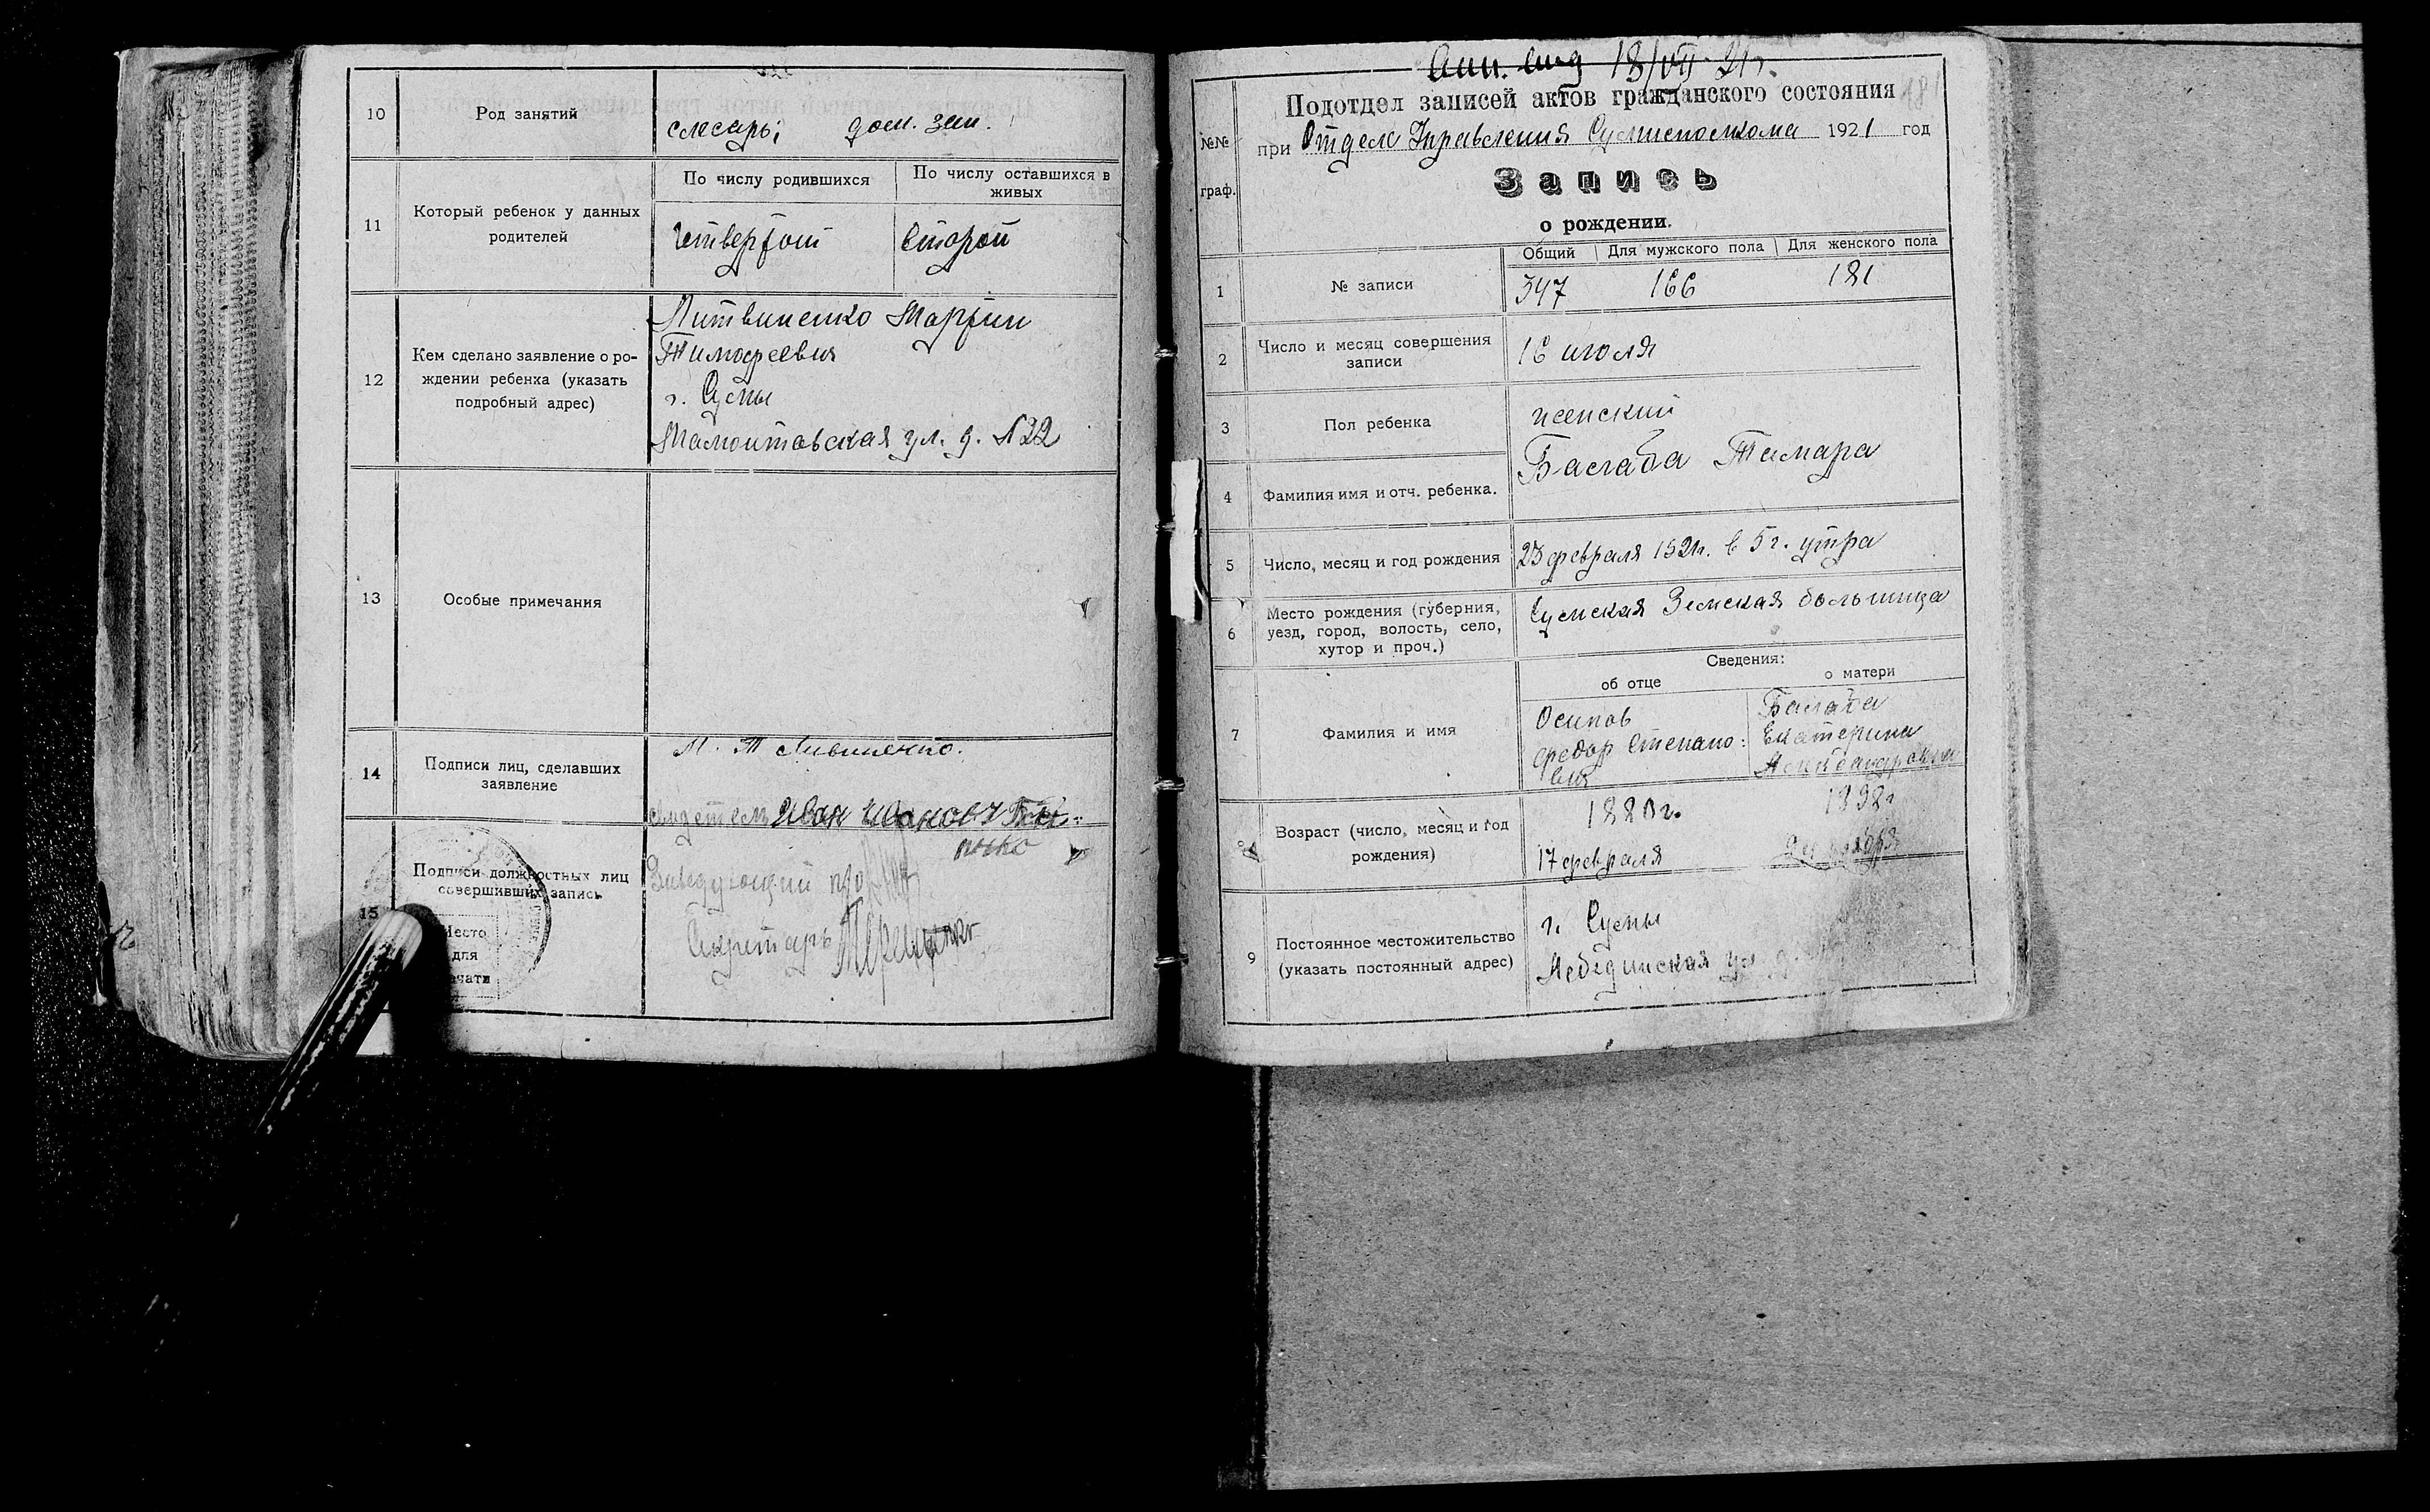 10
Род занятий
слесарь; дом. зан.
11
Который ребенок у данных
родителей
По числу родившихся
По числу оставшихся в
живых
Четвертый
Второй
12
Кем сделано заявление о ро-
ждении ребенка (указать
подробный адрес)
Литвиненко Мартин
Тимофеевич
г. Сумы
Мамонтовская ул. д. №22
13
Особые примечания
14
Подписи лиц, сделавших
заявление
М. Т
Свидетель Иван Иванович
15
Подписи должностных лиц
совершивших запись
Место
для
печати
Заведующий п/о
Секретарь
18/VII 21г.
Подотдел записей актов гражданского состояния
при Отделе Управления Сумисполкома 1921 год
№№
граф.
Запись
о рождении.
Общий Для мужского пола Для женского пола
1
№ записи
347 166 181
2
Число и месяц совершения
записи
16 июля
3
Пол ребенка
женский
4
Фамилия имя и отч. ребенка.
Балаба Тамара
5
Число, месяц и год рождения
23 февраля 1921г. в 5 г. утра
6
Место рождения (губерния,
уезд, город, волость, село,
хутор и проч.)
Сумская Земская больница
Сведения:
об отце
о матери
7
Фамилия и имя
Осипов
Федор Степано:
вич
Балаба
Екатерина
Александровна
8
Возраст (число, месяц и год
рождения)
1880г.
17 февраля
1898г
24 ноября
9
Постоянное местожительство
(указать постоянный адрес)
г. Сумы
Лебединская ул. д.